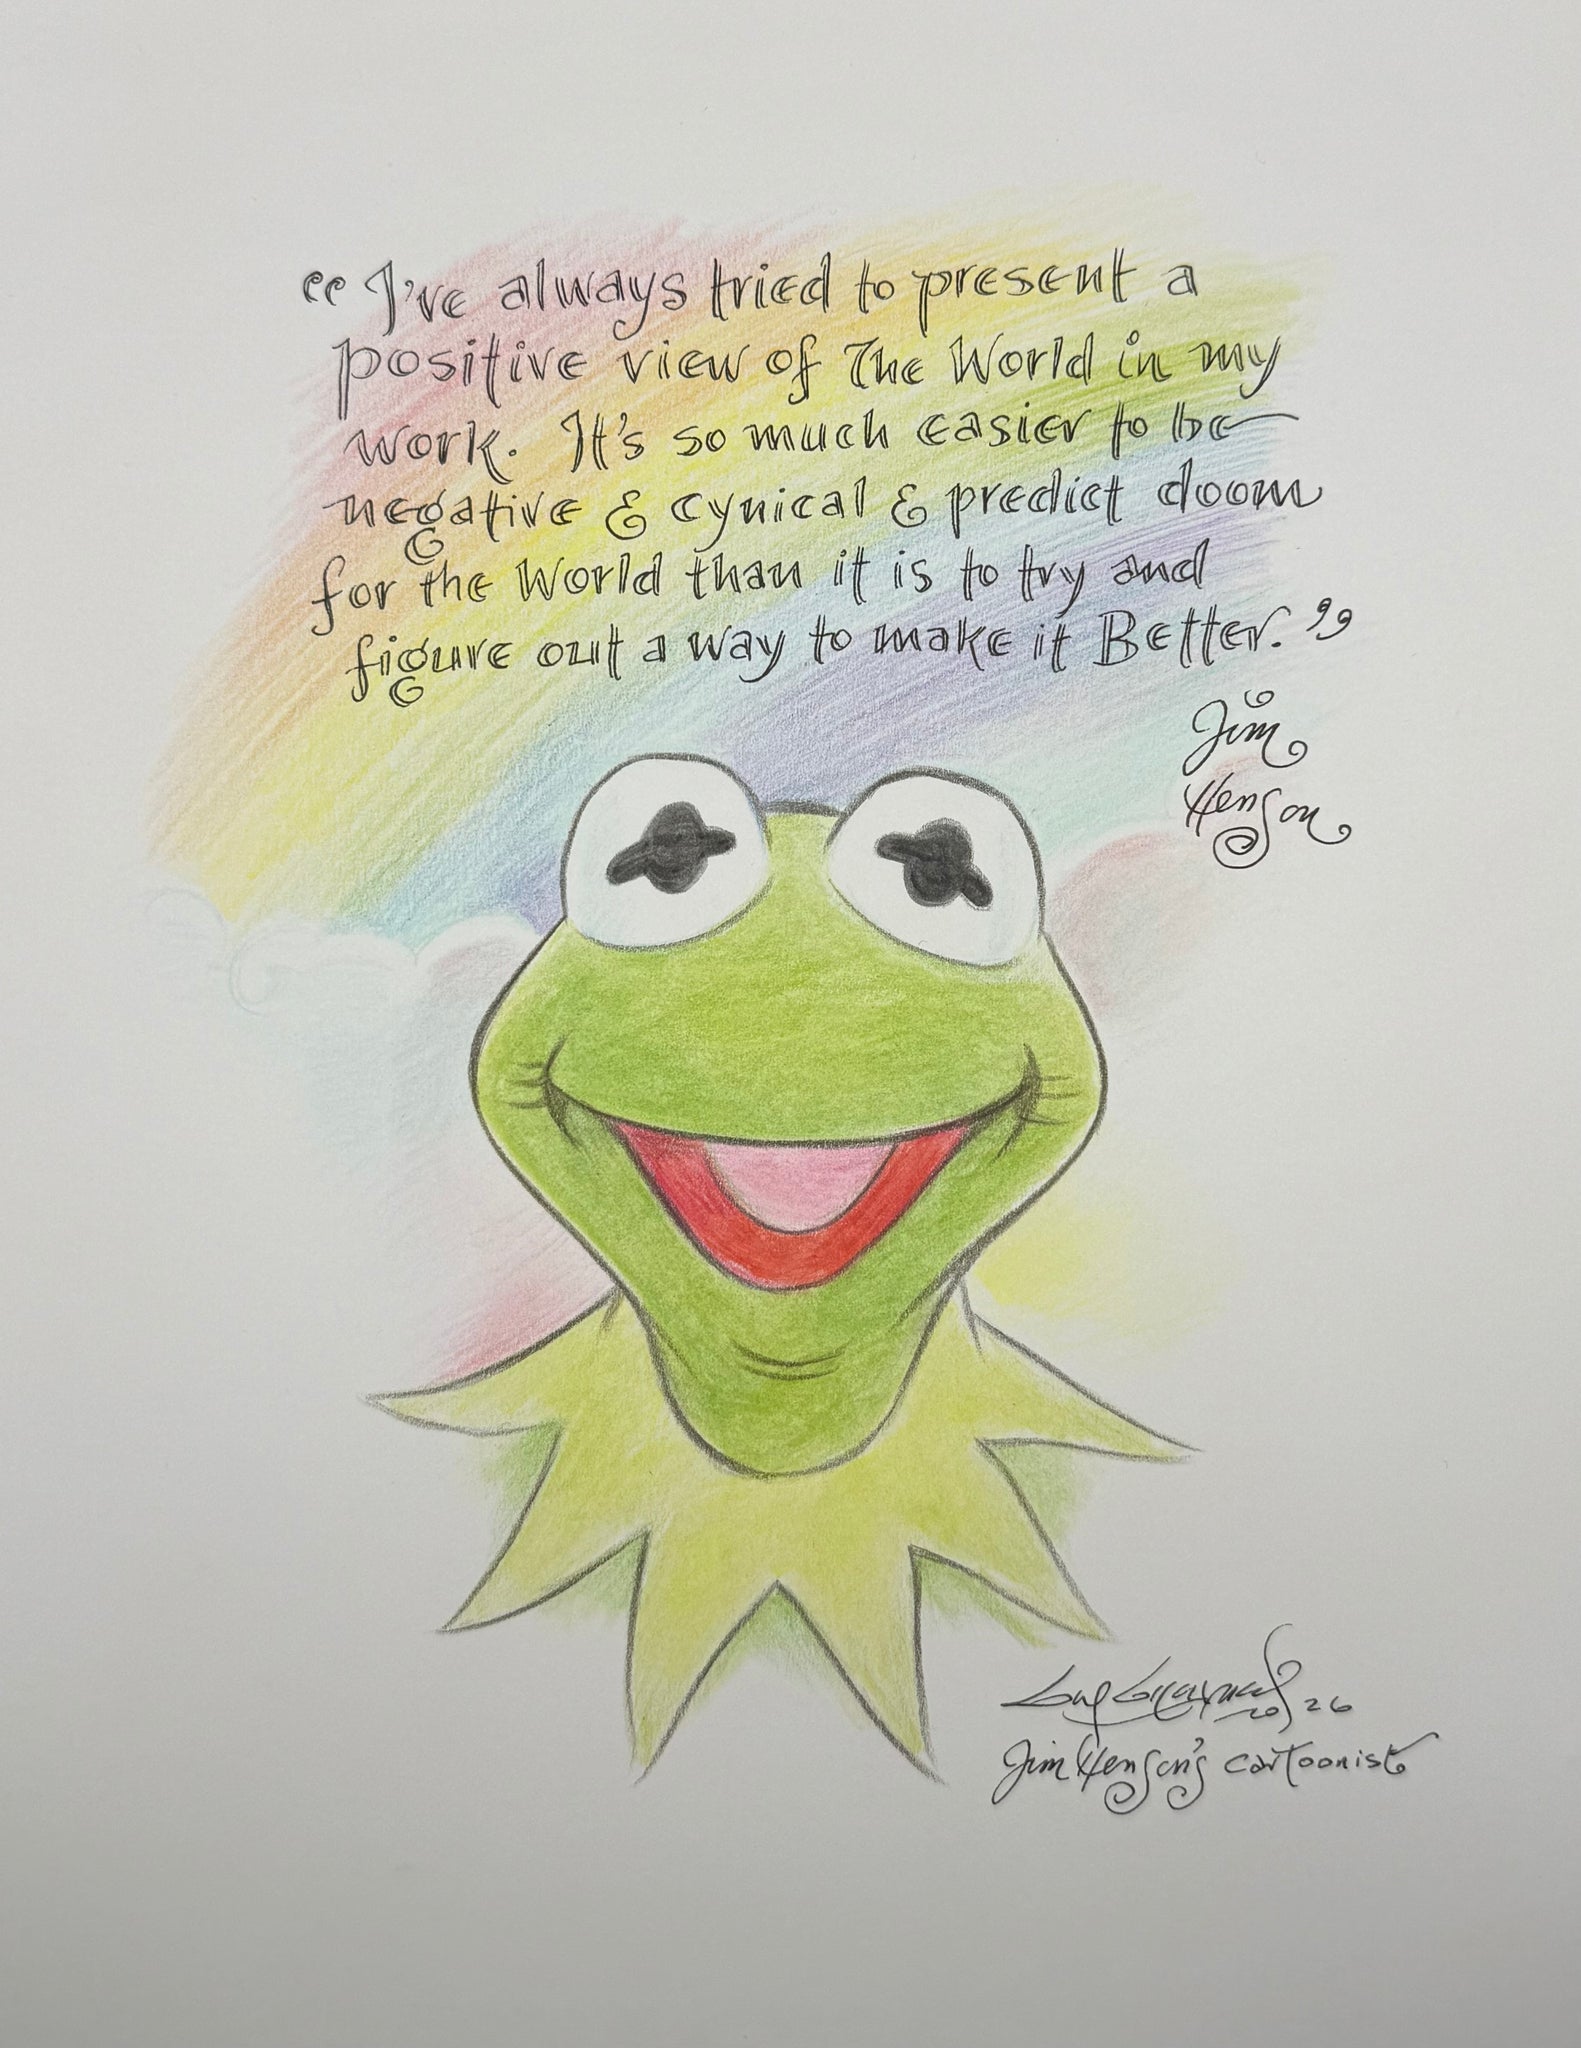 “I've always tried to present a
positive view of The World in my
work. It's so much easier to be
negative & cynical & predict doom
for the World than it is to try and
figure out a way to make it Better.”
Jim
Henson
Guy Gilchrist 2026
Jim Henson's cartoonist